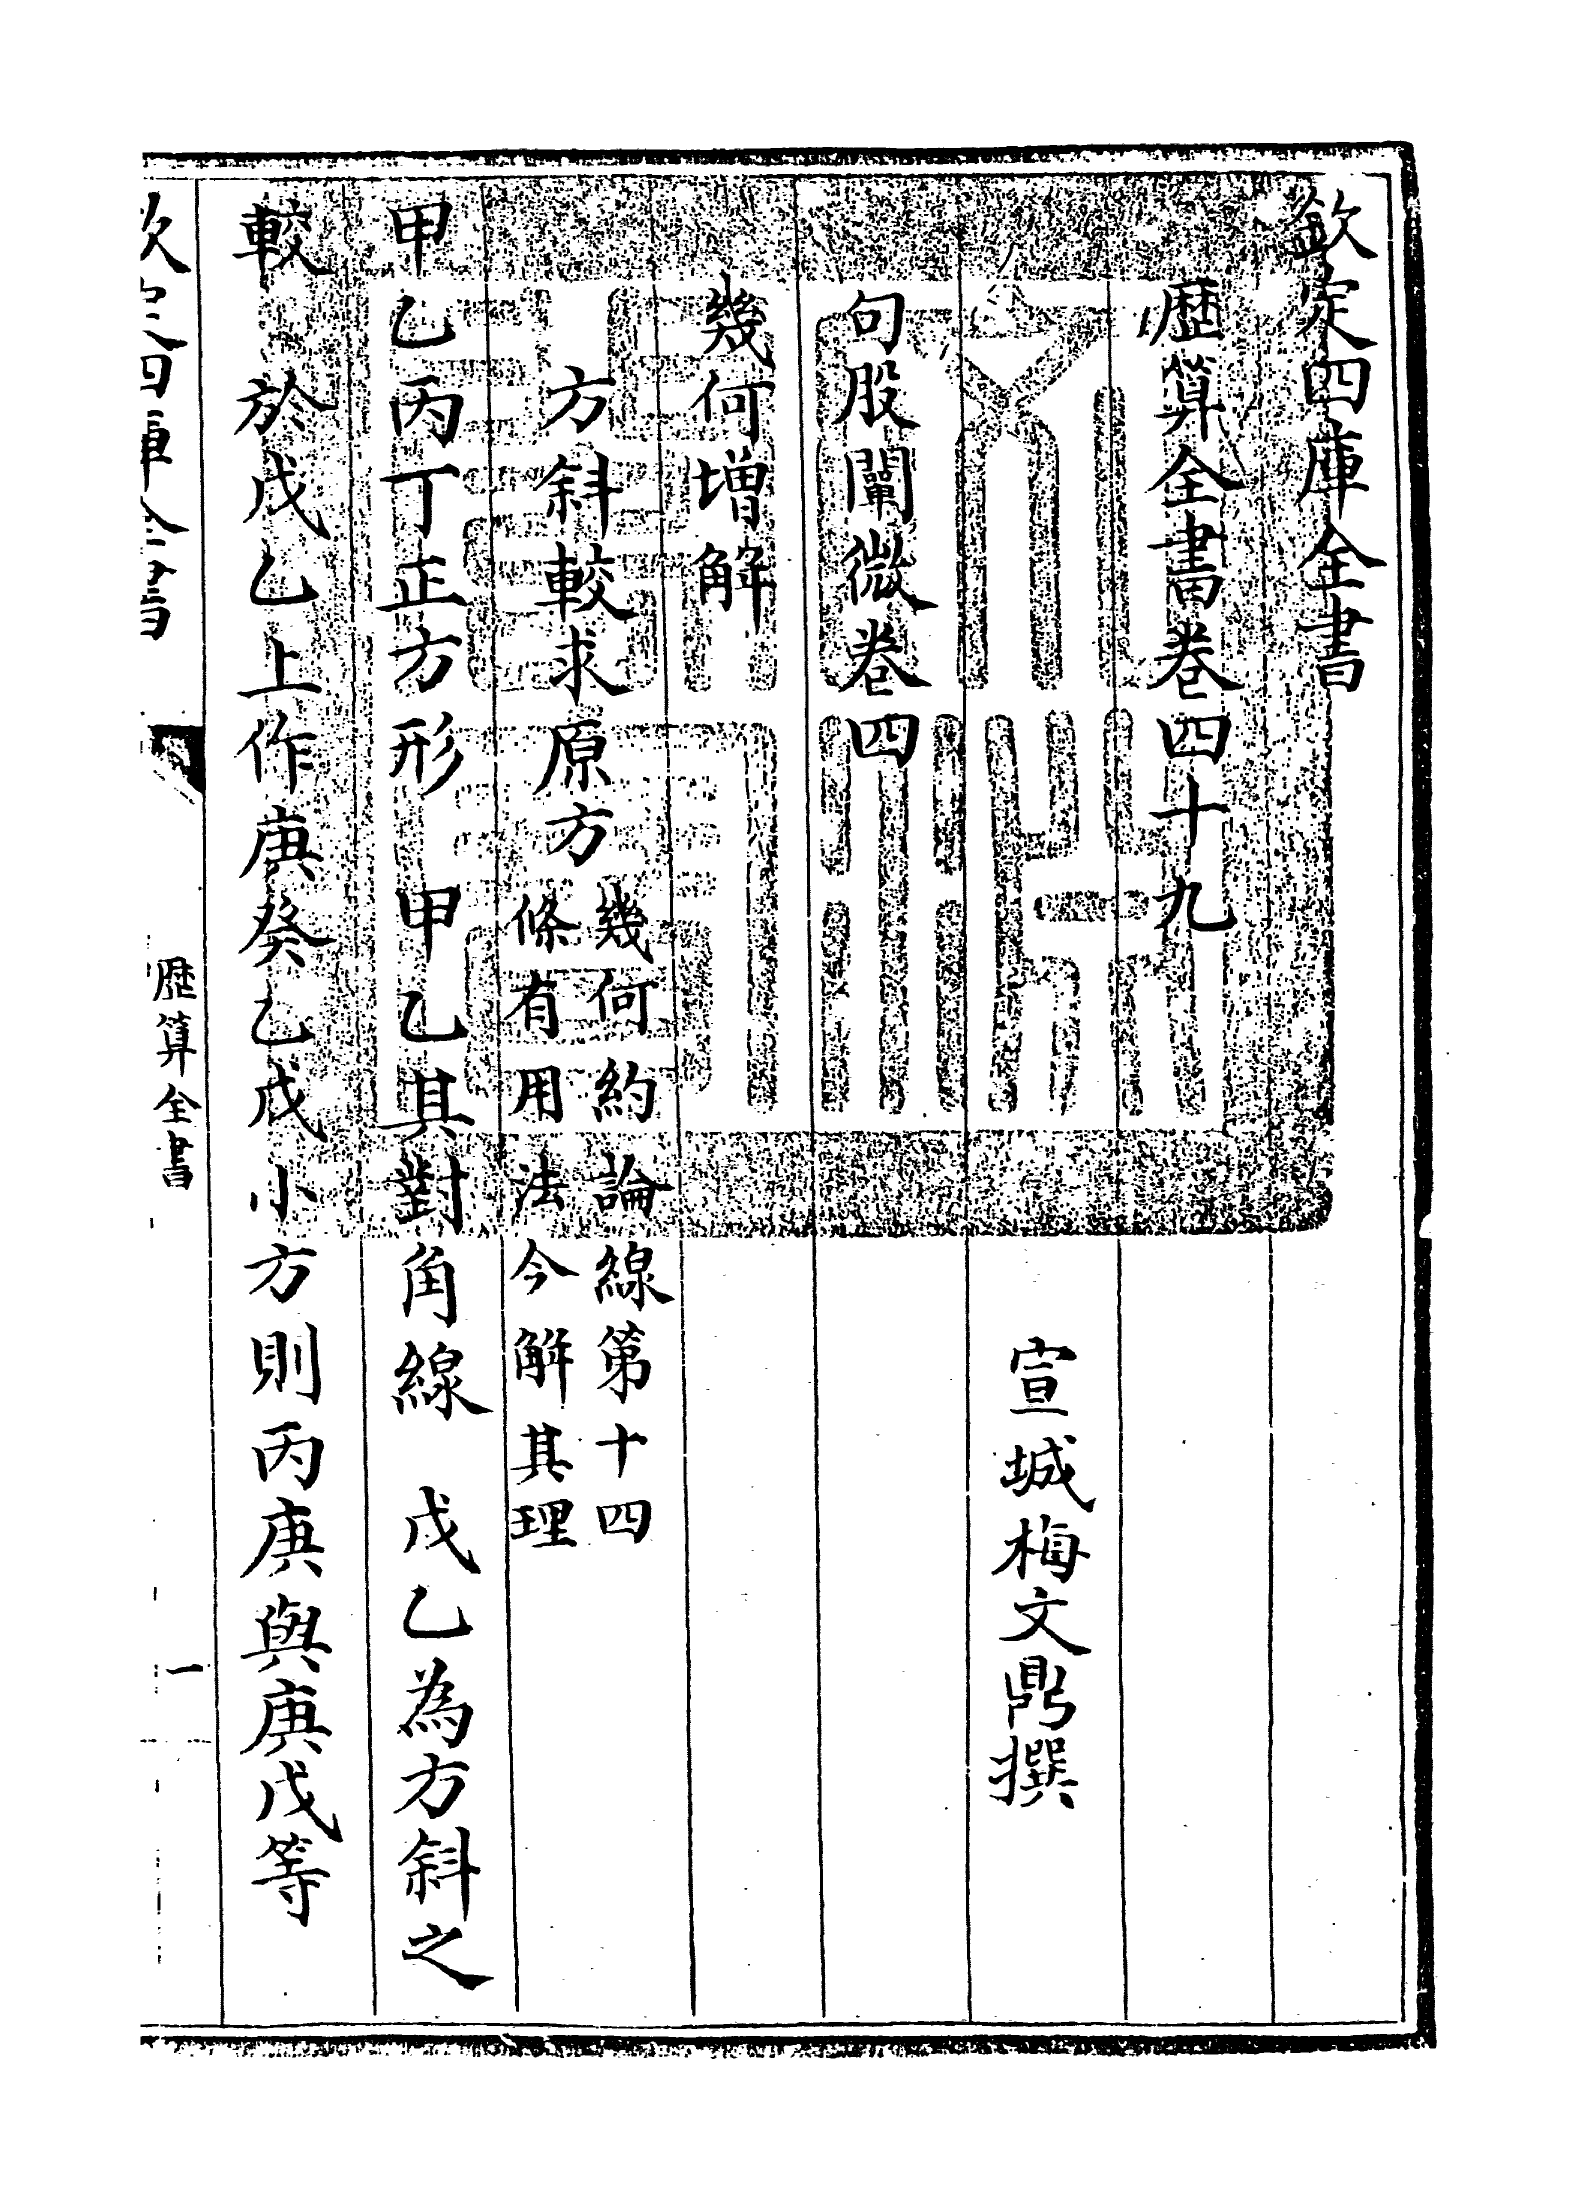 欽定四庫全書
歴算全書卷四十九
宣城梅文鼎撰
句股闡微卷四
幾何增解
方斜較求原方幾何約論線第十四
條有用法今解其理
甲乙丙丁正方形　甲乙其對角線　戊乙為方斜之
較　於戊乙上作庚癸乙戊小方則丙庚與庚戊等
欽定四庫全書
歴算全書
一